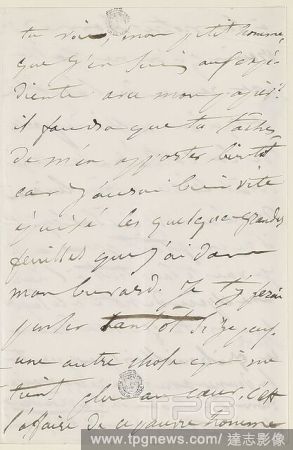 tu vois, mon petit homme,
que j'en suis au expé-
diente avec mon papier.
il faudra que tu tâches
de m'en apporter bientôt
car j'aurai bien vite
épuisé les quelques grandes
feuilles que j'ai dans
mon buvard. Je t'y ferai
penser tantôt
une autre chose qui me
tient plus au cœur, c'est
l'affaire de ce pauvre homme
TPG
www.tpgnews.com / 達志影像